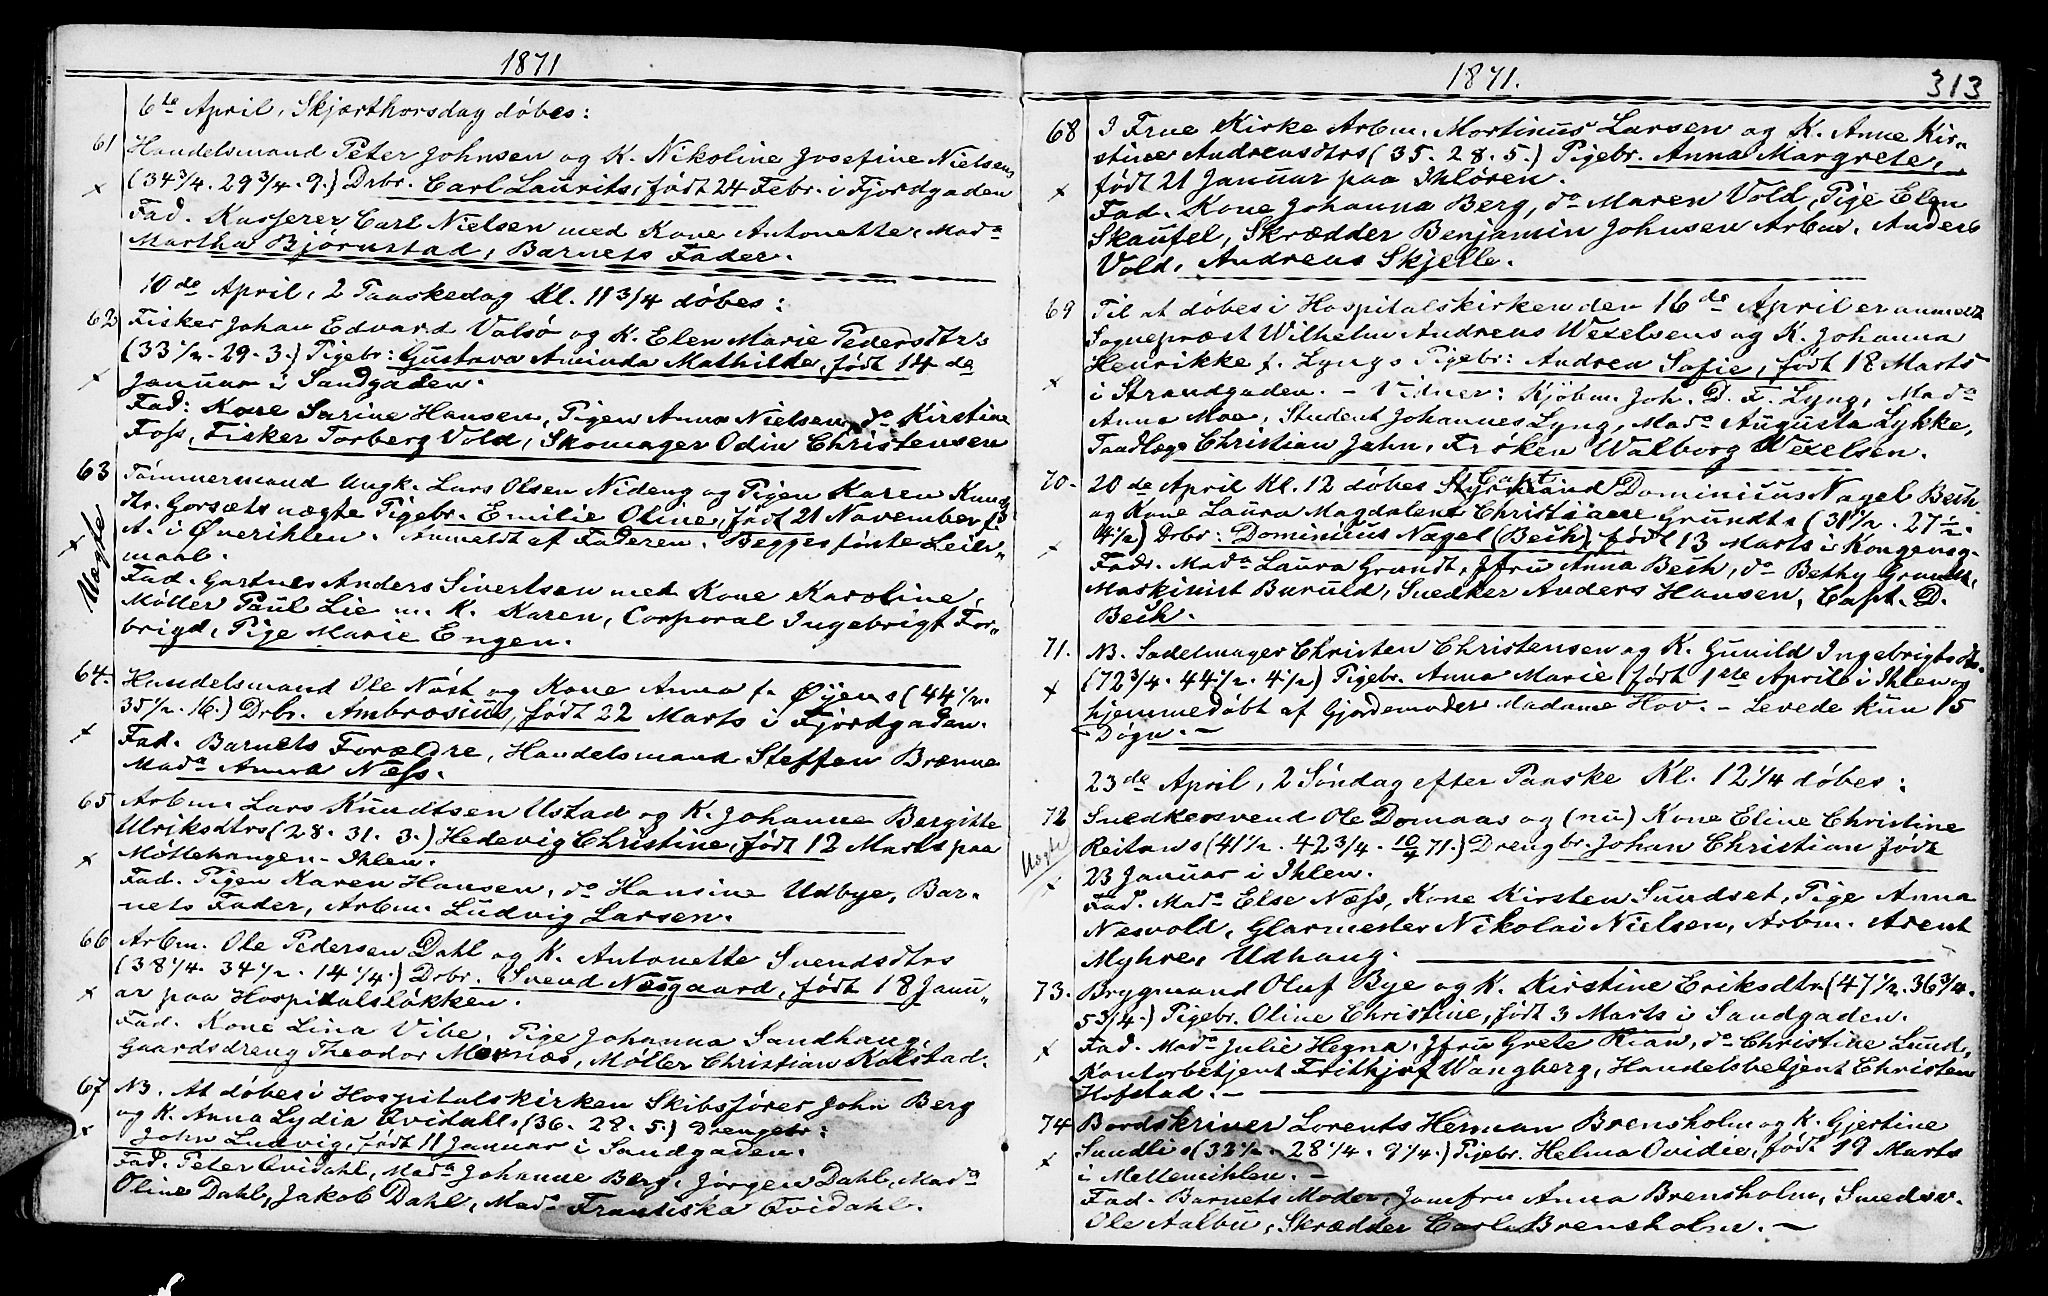 1871
6te April, Skjærthorsdag døbes:
61 Handelsmand Peter Johnsen og K. Nikoline Josefine Nielsens
× (34 3/4. 29 3/4. 9.) Drbr. Carl Laurits, født 24 Febr. i Fjordgaden
Fad. Kasserer Carl Nielsen med Kone Antonette, Mada
Martha Bjørnstad, Barnets Fader.
10de April, 2 Paaskedag Kl. 11 3/4 døbes:
62 Fisker Johan Edvard Valsø og K. Elen Marie Pedersdtrs
(33 1/2. 29. 3.) Pigebr: Gustava Aminda Mathilde, født 14de
× Januar i Sandgaden.
Fad: Kone Sarine Hansen, Pigen Anna Nielsen, do Kirstine
Foss, Fisker Torberg Vold, Skomager Odin Christensen
63 Tømmermand Ungk. Lars Olsen Nideng og Pigen Karen Knuds
dtr. Gorsæts uægte Pigebr. Emilie Oline, født 21 November
× Uægte A. i Øverihlen. Anmeldt af Faderen. Begges første Leier-
maal.
Fad. Gartner Anders Sivertsen med Kone Karoline,
Møller Paul Lie m. K. Karen, Corporal Ingebrigt For-
brigd, Pige Marie Engen.
64. Handelsmand Ole Nøst og Kone Anna f. Øyens (44 1/2.
35 1/2. 16.) Drbr. Ambrosius, født 22 Marts i Fjordgaden.
× Fad. Barnets Forældre, Handelsmand Steffen Brænne
Mada Anna Næss.
65 Arbm. Lars Knudtsen Ustad og K. Johanne Bergitte
Ulriksdtrs (28. 31. 3.) Hedevig Christine, født 12 Marts paa
× Møllehaugen - Ihlen.
Fad. Pigen Karen Hansen, do Hansine Udbye, Bar-
nets Fader, Arbm. Ludvig Larsen.
66 Arbm. Ole Pedersen Dahl og K. Antonette Svendsdtrs
(38 1/4. 34 1/2. 14 1/4.) Drbr. Svend Nesgaard, født 18 Janu-
× ar paa Hospitalsløkken.
Fad. Kone Lina Vibe, Pige Johanna Sandhaug,
Gaardsdreng Theodor Mærnæs, Møller Christian Kolstad.
67 NB. At døbes i Hospitalskirken Skibsfører John Berg
og K. Anna Lydia Qvidahls (36. 28. 5.) Drengebr:
× John Ludvig, født 11 Januar i Sandgaden.
Fad. Peter Qvidahl, Mada Johanne Berg, Jørgen Dahl, Mada
Oline Dahl, Jakob Dahl, Mada Frantiska Qvidahl.
1871. 313
68 I Frue Kirke Arbm. Mortinus Larsen og K. Anne Kir-
stine Andreasdtrs (35. 28. 5.) Pigebr. Anna Margrete,
× født 21 Januar paa Ihløren.
Fad. Kone Johanna Berg, do Maren Vold, Pige Elen
Skaufel, Skrædder Benjamin Johnsen Arbm. Anders
Vold, Andreas Skjelle.
69 Til at døbes i Hospitalskirken den 16de April er anmeldt
Sognepræst Wilhelm Andreas Wexelsens og K. Johanna
Henrikke f. Lyngs Pigebr: Andrea Sofie, født 18 Marts
× i Strandgaden. - Vidner: Kjøbm. Joh. D. F. Lyng, Mada
Anna Moe, Student Johannes Lyng, Mada Augusta Lykke,
Tandlæge Christian Jahn, Frøken Walborg Wexelsen.
70. 20de April Kl. 12 døbes Styrmand Capt. Dominicus Nagel Bech
og Kone Laura Magdalene Christiane Grundts (31 1/2. 27 1/2.
4 1/2) Drbr: Dominicus Nagel (Bech), født 13 Marts i Kongensg.
× Fadr. Mada Laura Grundt, Jfru Anna Bech, do Bethy Grundt,
Maskinist Baruld, Snedker Anders Hansen, Capt. D.
Bech.
71. NB. Sadelmager Christen Christensen og K. Gunild Ingebrigtsdtrs
× (72 3/4. 44 1/2. 4 1/2) Pigebr. Anna Marie født 1ste April i Ihlen og
hjemmedøbt af Gjordemoder Madame Hov. - Levede kun 15
Døgn. -
23de April, 2 Søndag efter Paaske Kl. 12 1/4 døbes:
72 Snedkersvend Ole Domaas og (nu) Kone Eline Christine
Uægte Reitans (41 1/2. 42 3/4. 10/4 71.) Drengbr. Johan Christian født
× 23 Januar i Ihlen.
Fad. Mada Else Næss, Kone Kirsten Sundset, Pige Anna
Nesvold, Glarmester Nikolai Nielsen, Arbm. Arent
Myhre, Udhaug.
73. Brygmand Oluf Bye og K. Kirstine Eriksdtr (47 1/2. 36 3/4.
5 3/4.) Pigebr. Oline Christine, født 3 Marts i Sandgaden.
× Fad. Mada Julie Hegna, Jfru Grete Rian, do Christine Lund,
Kontorbetjent Frithjof Wangberg, Handelsbetjent Christen
Hofstad. -
74 Bordskriver Lorents Herman Brensholm og K. Gjertine
Sundlis (32 1/2. 28 1/4. 9 1/4.) Pigebr. Helma Ovidie, født 19 Marts
× i Mellemihlen. -
Fad. Barnets Moder, Jomfru Anna Brensholm, Smedsv.
Ole Aalbu, Skrædder Carl Brensholm. -